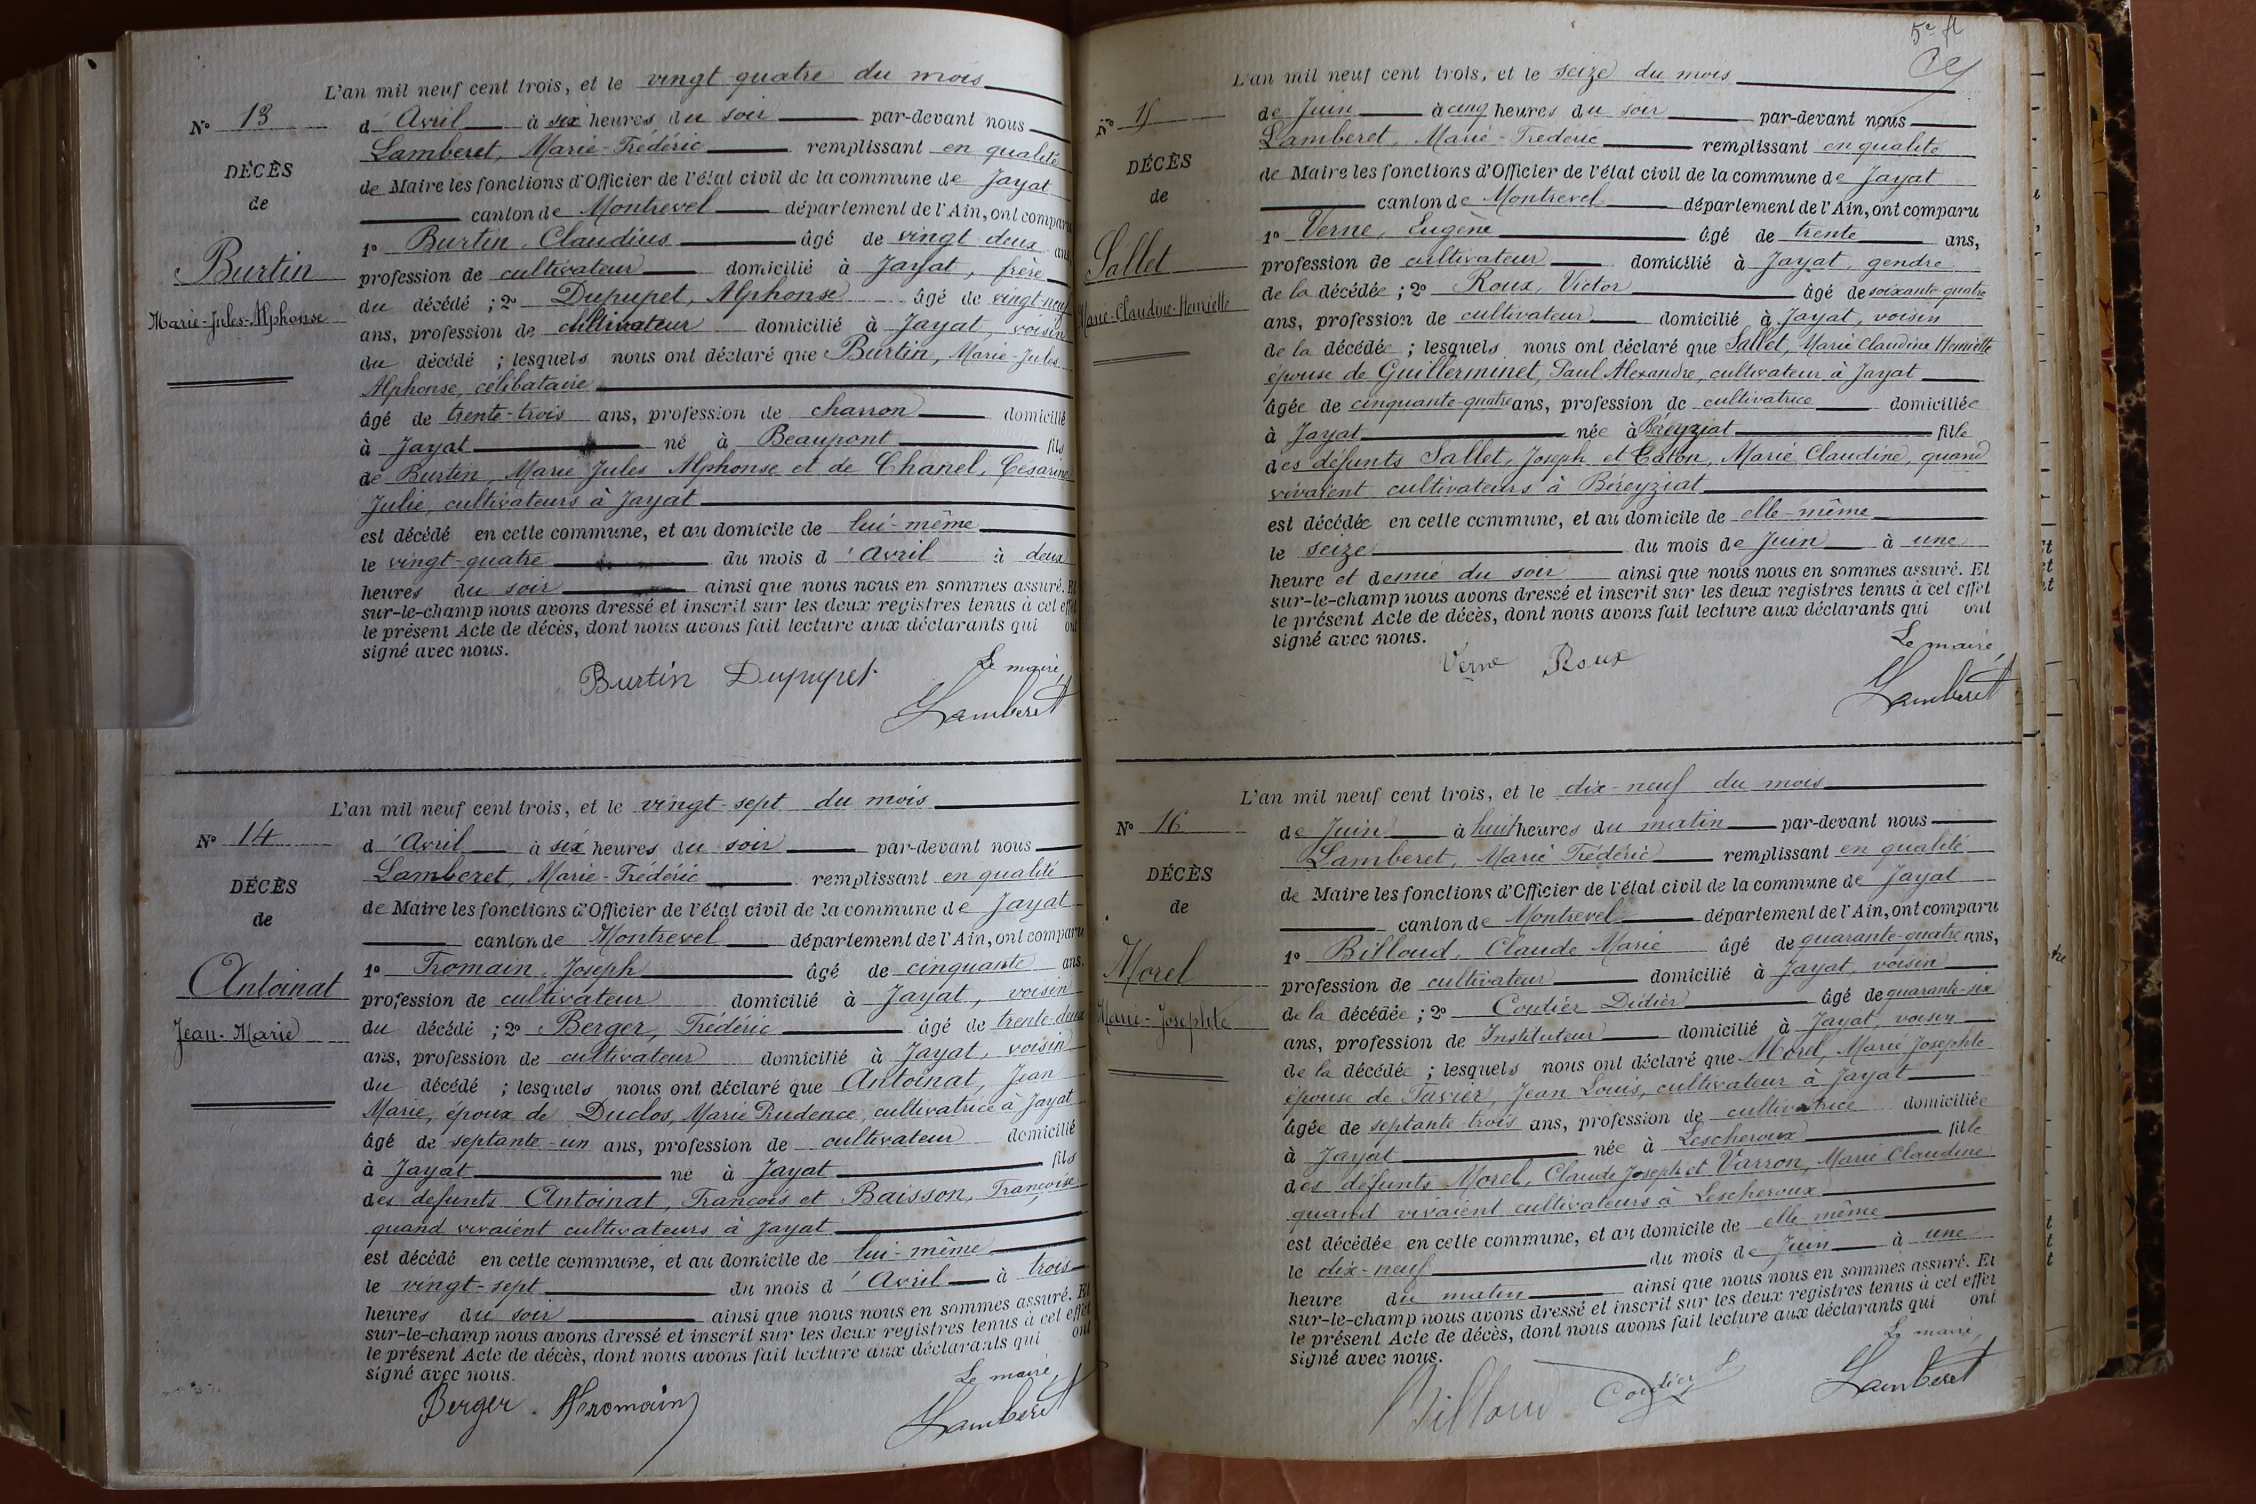 L'an mil neuf cent trois, et le vingt quatre du mois
N° 13
d'Avril à six heures du soir par-devant nous
Lamberet, Marie-Frédéric remplissant en qualité
DÉCÈS
de Maire les fonctions d'Officier de l'état civil de la commune de Jayat
de
canton de Montrevel département de l'Ain, ont comparu
1° Burtin, Claudius âgé de vingt deux ans
Burtin
profession de cultivateur domicilié à Jayat, frère
du décédé ; 2° Dupupet, Alphonse âgé de vingt-neuf
Marie-Jules-Alphonse
ans, profession de cultivateur domicilié à Jayat, voisin
du décédé ; lesquels nous ont déclaré que Burtin, Marie-Jules
Alphonse, célibataire
âgé de trente-trois ans, profession de charron domicilié
à Jayat né à Beaupont fils
de Burtin, Marie Jules Alphonse et de Chanel, Césarine
Julie, cultivateurs à Jayat
est décédé en cette commune, et au domicile de lui-même
le vingt-quatre du mois d'Avril à deux
heures du soir ainsi que nous nous en sommes assuré. Et
sur-le-champ nous avons dressé et inscrit sur les deux registres tenus à cet effet
le présent Acte de décès, dont nous avons fait lecture aux déclarants qui ont
signé avec nous.
Le maire,
Burtin Dupupet
Lamberet
L'an mil neuf cent trois, et le vingt-sept du mois
N° 14
d'Avril à six heures du soir par-devant nous
Lamberet, Marie-Frédéric remplissant en qualité
DÉCÈS
de Maire les fonctions d'Officier de l'état civil de la commune de Jayat
de
canton de Montrevel département de l'Ain, ont comparu
1° Fromain, Joseph âgé de cinquante ans.
Antoinat
profession de cultivateur domicilié à Jayat, voisin
du décédé ; 2° Berger, Frédéric âgé de trente-deux
Jean-Marie
ans, profession de cultivateur domicilié à Jayat, voisin
du décédé ; lesquels nous ont déclaré que Antoinat, Jean
Marie, époux de Duclos, Marie Prudence, cultivatrice à Jayat
âgé de septante-un ans, profession de cultivateur domicilié
à Jayat né à Jayat fils
des défunts Antoinat, François et Baisson, Françoise
quand vivaient cultivateurs à Jayat
est décédé en cette commune, et au domicile de lui-même
le vingt-sept du mois d'Avril à trois
heures du soir ainsi que nous nous en sommes assuré. Et
sur-le-champ nous avons dressé et inscrit sur les deux registres tenus à cet effet
le présent Acte de décès, dont nous avons fait lecture aux déclarants qui ont
signé avec nous.
Le maire,
Berger Fromain
Lamberet
5e ft
L'an mil neuf cent trois, et le seize du mois
N° 15
de Juin à cinq heures du soir par-devant nous
Lamberet, Marie-Frédéric remplissant en qualité
DÉCÈS
de Maire les fonctions d'Officier de l'état civil de la commune de Jayat
de
canton de Montrevel département de l'Ain, ont comparu
1° Verne, Eugène âgé de trente ans,
Sallet
profession de cultivateur domicilié à Jayat, gendre
de la décédée ; 2° Roux, Victor âgé de soixante-quatre
Marie-Claudine-Henriette
ans, profession de cultivateur domicilié à Jayat, voisin
de la décédée ; lesquels nous ont déclaré que Sallet, Marie Claudine Henriette
épouse de Guillerminet, Paul Alexandre, cultivateur à Jayat
âgée de cinquante-quatre ans, profession de cultivatrice domiciliée
à Jayat née à Béreyziat fille
des défunts Sallet, Joseph et Caton, Marie Claudine, quand
vivaient cultivateurs à Béreyziat
est décédée en cette commune, et au domicile de elle-même
le seize du mois de Juin à une
heure et demie du soir ainsi que nous nous en sommes assuré. Et
sur-le-champ nous avons dressé et inscrit sur les deux registres tenus à cet effet
le présent Acte de décès, dont nous avons fait lecture aux déclarants qui ont
signé avec nous.
Le maire,
Verne Roux
Lamberet
L'an mil neuf cent trois, et le dix-neuf du mois
N° 16
de Juin à huit heures du matin par-devant nous
Lamberet, Marie Frédéric remplissant en qualité
DÉCÈS
de Maire les fonctions d'Officier de l'état civil de la commune de Jayat
de
canton de Montrevel département de l'Ain, ont comparu
1° Billoud, Claude Marie âgé de quarante-quatre ans,
Morel
profession de cultivateur domicilié à Jayat, voisin
de la décédée ; 2° Coudier Didier âgé de quarante-six
Marie-Josephte
ans, profession de Instituteur domicilié à Jayat, voisin
de la décédée ; lesquels nous ont déclaré que Morel, Marie Josephte
épouse de Favier, Jean Louis, cultivateur à Jayat
âgée de septante-trois ans, profession de cultivatrice domiciliée
à Jayat née à Lescheroux fille
des défunts Morel, Claude Joseph et Varron, Marie Claudine
quand vivaient cultivateurs à Lescheroux
est décédée en cette commune, et au domicile de elle même
le dix-neuf du mois de Juin à une
heure du matin ainsi que nous nous en sommes assuré. Et
sur-le-champ nous avons dressé et inscrit sur les deux registres tenus à cet effet
le présent Acte de décès, dont nous avons fait lecture aux déclarants qui ont
signé avec nous.
Le maire,
Billoud Coudier
Lamberet